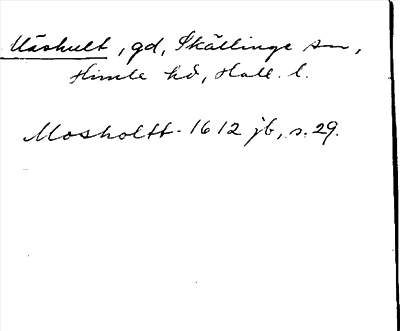 Måshult, gd, Skällinge sn,
Himle hd, Hall. l.
Mosholtt. 1612 jb, s. 29.